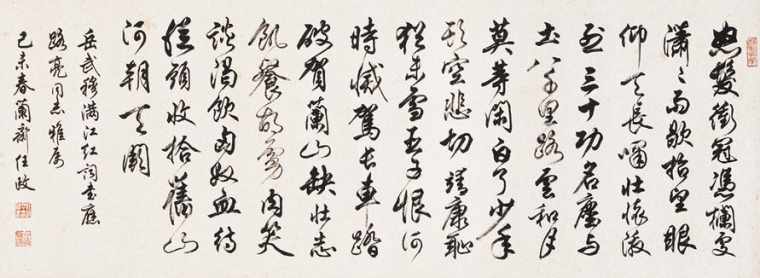 怒髮衝冠憑欄處
瀟々雨歇抬望眼
仰天長嘯壯懷激
烈三十功名塵與
土八千里路雲和月
莫等閑白了少年
頭空悲切靖康恥
猶未雪臣子恨何
時滅駕長車踏
破賀蘭山缺壯志
飢餐胡虜肉笑
談渴飲匈奴血待
從頭收拾舊山
河朝天闕
岳武穆滿江紅詞書應
路亮同志雅屬
己未春蘭齋任政